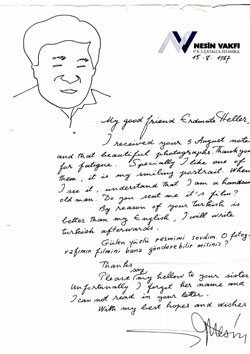 NESİN VAKFI
P.K.5 ÇATALCA-İSTANBUL
15.8.1987
My good friend Erdmute Heller,
I received your 5 August note
and that beautiful photographs. Thank you
for fatigue. Specially I like one of
them, it is my smiling portrait. When
I see it, understand that I am a handsome
old man. Do you sent me it's film?
By reason of your turkish is
better than my English, I will write
turkish afterwards.
Gülen yüzlü resmimi sevdim. O fotoğ-
rafımın filmini bana gönderebilir misiniz?
Thanks
say
Please my hellow to your sister
Unfortunatly I forget her name and
I can not read in your letter.
With my best hopes and wishes